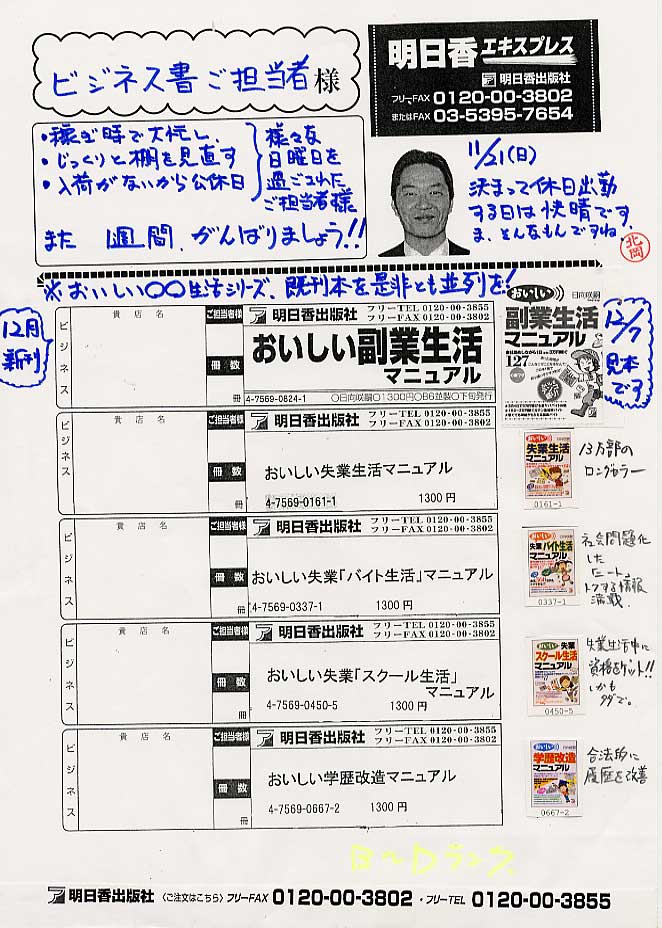 ビジネス書ご担当者様
明日香エキスプレス
ア 明日香出版社
フリーFAX 0120-00-3802
またはFAX 03-5395-7654
・稼ぎ時で大忙し、
・じっくりと棚を見直す
・入荷がないから公休日
様々な
日曜日を
過ごされた
ご担当者様
また1週間、がんばりましょう!!
11/21(日)
決まって休日出勤
する日は快晴です
ま、そんなもんですね。
北岡
※おいしい〇〇生活シリーズ、既刊本を是非とも並列を!
12月
新刊
ビジネス
貴店名
ご担当者様
冊数
冊
ア 明日香出版社
フリーTEL 0120-00-3855
フリーFAX 0120-00-3802
おいしい副業生活
マニュアル
4-7569-0824-1
〇日向咲嗣〇1300円〇B6並製〇下旬発行
おいしい
日向咲嗣
副業生活
マニュアル
127
12/7
見本
です
ビジネス
貴店名
ご担当者様
冊数
冊
ア 明日香出版社
フリーTEL 0120-00-3855
フリーFAX 0120-00-3802
おいしい失業生活マニュアル
4-7569-0161-1 1300円
おいしい
失業生活
マニュアル
0161-1
13万部の
ロングセラー
ビジネス
貴店名
ご担当者様
冊数
冊
ア 明日香出版社
フリーTEL 0120-00-3855
フリーFAX 0120-00-3802
おいしい失業「バイト生活」マニュアル
4-7569-0337-1 1300円
おいしい
失業バイト生活
マニュアル
0337-1
社会問題化
した
「ニート」
トクする情報
満載
ビジネス
貴店名
ご担当者様
冊数
冊
ア 明日香出版社
フリーTEL 0120-00-3855
フリーFAX 0120-00-3802
おいしい失業「スクール生活」
マニュアル
4-7569-0450-5 1300円
おいしい 失業
スクール生活
マニュアル
0450-5
失業生活中に
資格をゲット!!
しかも
タダで。
ビジネス
貴店名
ご担当者様
冊数
冊
ア 明日香出版社
フリーTEL 0120-00-3855
フリーFAX 0120-00-3802
おいしい学歴改造マニュアル
4-7569-0667-2 1300円
おいしい
学歴改造
マニュアル
0667-2
合法的に
履歴を改善
B〜Dランス
ア 明日香出版社 〈ご注文はこちら〉 フリーFAX 0120-00-3802 ・フリーTEL 0120-00-3855